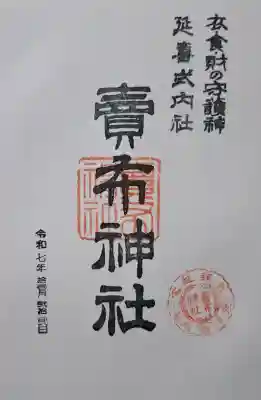 衣食財の守護神
延喜式内社
賣布神社
令和七年